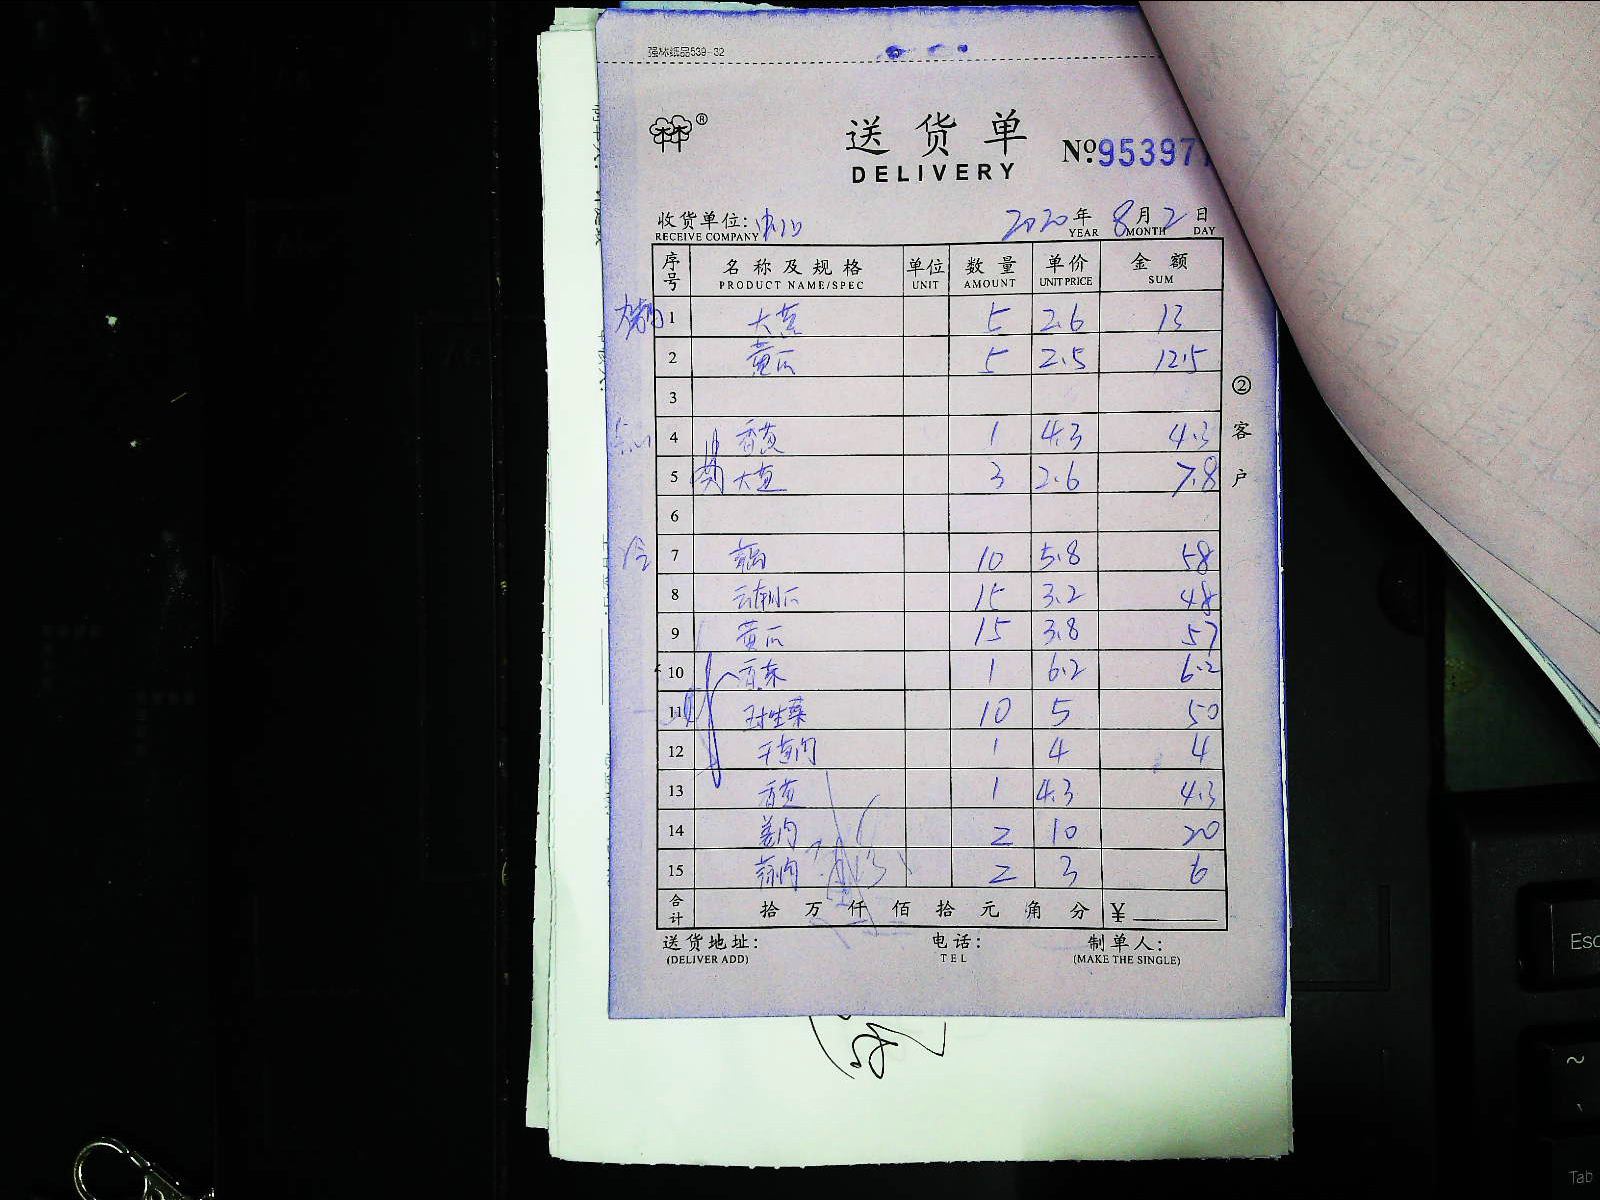 强林纸品539-32
®
送货单
№953977
DELIVERY
收货单位: 2020年 8月2日
RECEIVE COMPANY YEAR MONTH DAY
序号 名称及规格 单位 数量 单价 金额
PRODUCT NAME/SPEC UNIT AMOUNT UNIT PRICE SUM
1 大葱 5 2.6 13
2 黄瓜 5 2.5 12.5
3
4 香葱 1 4.3 4.3
5 大葱 3 2.6 7.8
6
7 10 5.8 58
8 15 3.2 48
9 黄瓜 15 3.8 57
10 香菜 1 6.2 6.2
11 球生菜 10 5 50
12 1 4 4
13 香葱 1 4.3 4.3
14 姜肉 2 10 20
15 蒜肉 2 3 6
合计 拾 万 仟 佰 拾 元 角 分 ¥
送货地址: 电话: 制单人:
(DELIVER ADD) TEL (MAKE THE SINGLE)
②客户
Esc
~
Tab